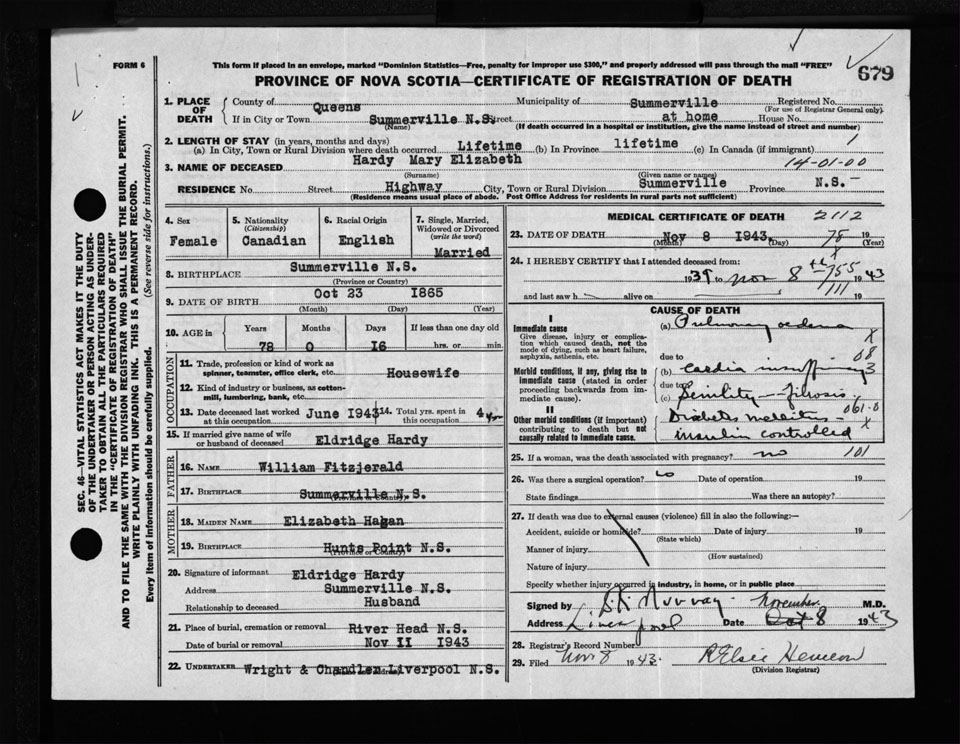 FORM 6
This form if placed in an envelope, marked "Dominion Statistics—Free, penalty for improper use $300," and properly addressed will pass through the mail "FREE"
679
PROVINCE OF NOVA SCOTIA—CERTIFICATE OF REGISTRATION OF DEATH
1. PLACE OF DEATH
County of Queens Municipality of Summerville Registered No.
(For use of Registrar General only)
If in City or Town Summerville N.S. Street at home House No.
(Name) (If death occurred in a hospital or institution, give the name instead of street and number)
2. LENGTH OF STAY (in years, months and days)
(a) In City, Town or Rural Division where death occurred Lifetime (b) In Province lifetime (c) In Canada (if immigrant)
3. NAME OF DECEASED Hardy Mary Elizabeth 14-01-00
(Surname) (Given name or names)
RESIDENCE No. Street Highway City, Town or Rural Division Summerville Province N.S.
(Residence means usual place of abode. Post Office Address for residents in rural parts not sufficient)
4. Sex Female
5. Nationality (Citizenship) Canadian
6. Racial Origin English
7. Single, Married, Widowed or Divorced (write the word) Married
8. BIRTHPLACE Summerville N.S.
(Province or Country)
9. DATE OF BIRTH Oct 23 1865
(Month) (Day) (Year)
10. AGE in Years Months Days If less than one day old
78 0 16 hrs. or min.
OCCUPATION
11. Trade, profession or kind of work as spinner, teamster, office clerk, etc. Housewife
12. Kind of industry or business, as cotton-mill, lumbering, bank, etc.
13. Date deceased last worked at this occupation June 1943
14. Total yrs. spent in this occupation
15. If married give name of wife or husband of deceased Eldridge Hardy
FATHER
16. NAME William Fitzjerald
17. BIRTHPLACE Summerville N.S.
(Province or Country)
MOTHER
18. MAIDEN NAME Elizabeth Hagan
19. BIRTHPLACE Hunts Point N.S.
(Province or Country)
20. Signature of informant Eldridge Hardy
Address Summerville N.S.
Relationship to deceased Husband
21. Place of burial, cremation or removal River Head N.S.
Date of burial or removal Nov 11 1943
22. UNDERTAKER Wright & Chandler Liverpool N.S.
MEDICAL CERTIFICATE OF DEATH 2112
23. DATE OF DEATH Nov 8 1943 78 19
(Month) (Day) (Year)
24. I HEREBY CERTIFY that I attended deceased from:
to Nov 8th 1943
and last saw h alive on 19
CAUSE OF DEATH
I
Immediate cause
Give disease, injury or complication which caused death, not the mode of dying, such as heart failure, asphyxia, asthenia, etc.
(a) Pulmonary oedema
due to
Morbid conditions, if any, giving rise to immediate cause (stated in order proceeding backwards from immediate cause).
(b) Cardia insufficiency
due to
(c) Senility - Fibrosis
II
Other morbid conditions (if important) contributing to death but not causally related to immediate cause.
Diabetes mellitus -
insulin controlled
25. If a woman, was the death associated with pregnancy? no 101
26. Was there a surgical operation? Date of operation 19
State findings Was there an autopsy?
27. If death was due to external causes (violence) fill in also the following:—
Accident, suicide or homicide? Date of injury 19
(State which)
Manner of injury
(How sustained)
Nature of injury
Specify whether injury occurred in industry, in home, or in public place
Signed by Murray M.D.
Address Liverpool Date November Oct 8 1943
28. Registrar's Record Number
29. Filed Nov 8 1943
(Division Registrar)
SEC. 46—VITAL STATISTICS ACT MAKES IT THE DUTY
OF THE UNDERTAKER OR PERSON ACTING AS UNDER-
TAKER TO OBTAIN ALL THE PARTICULARS REQUIRED
IN THE "CERTIFICATE OF REGISTRATION OF DEATH"
AND TO FILE THE SAME WITH THE DIVISION REGISTRAR WHO SHALL ISSUE THE BURIAL PERMIT.
WRITE PLAINLY WITH UNFADING INK. THIS IS A PERMANENT RECORD.
Every item of information should be carefully supplied. (See reverse side for instructions.)